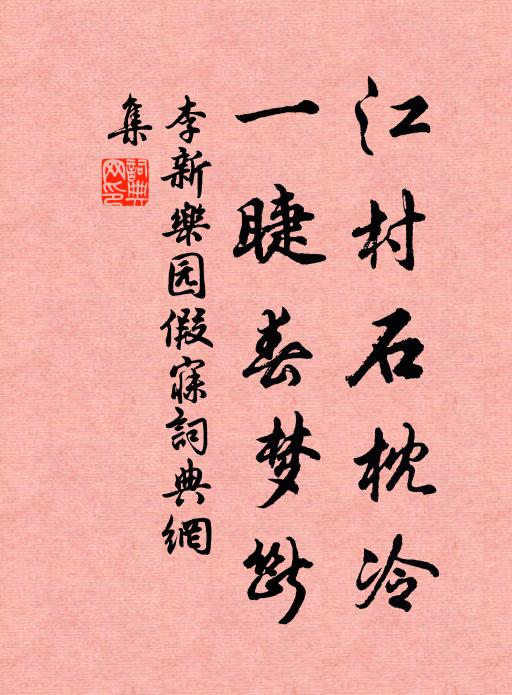 江村石枕冷
一睫春梦断
李新樂园假寐詞典網
集
詞典网印